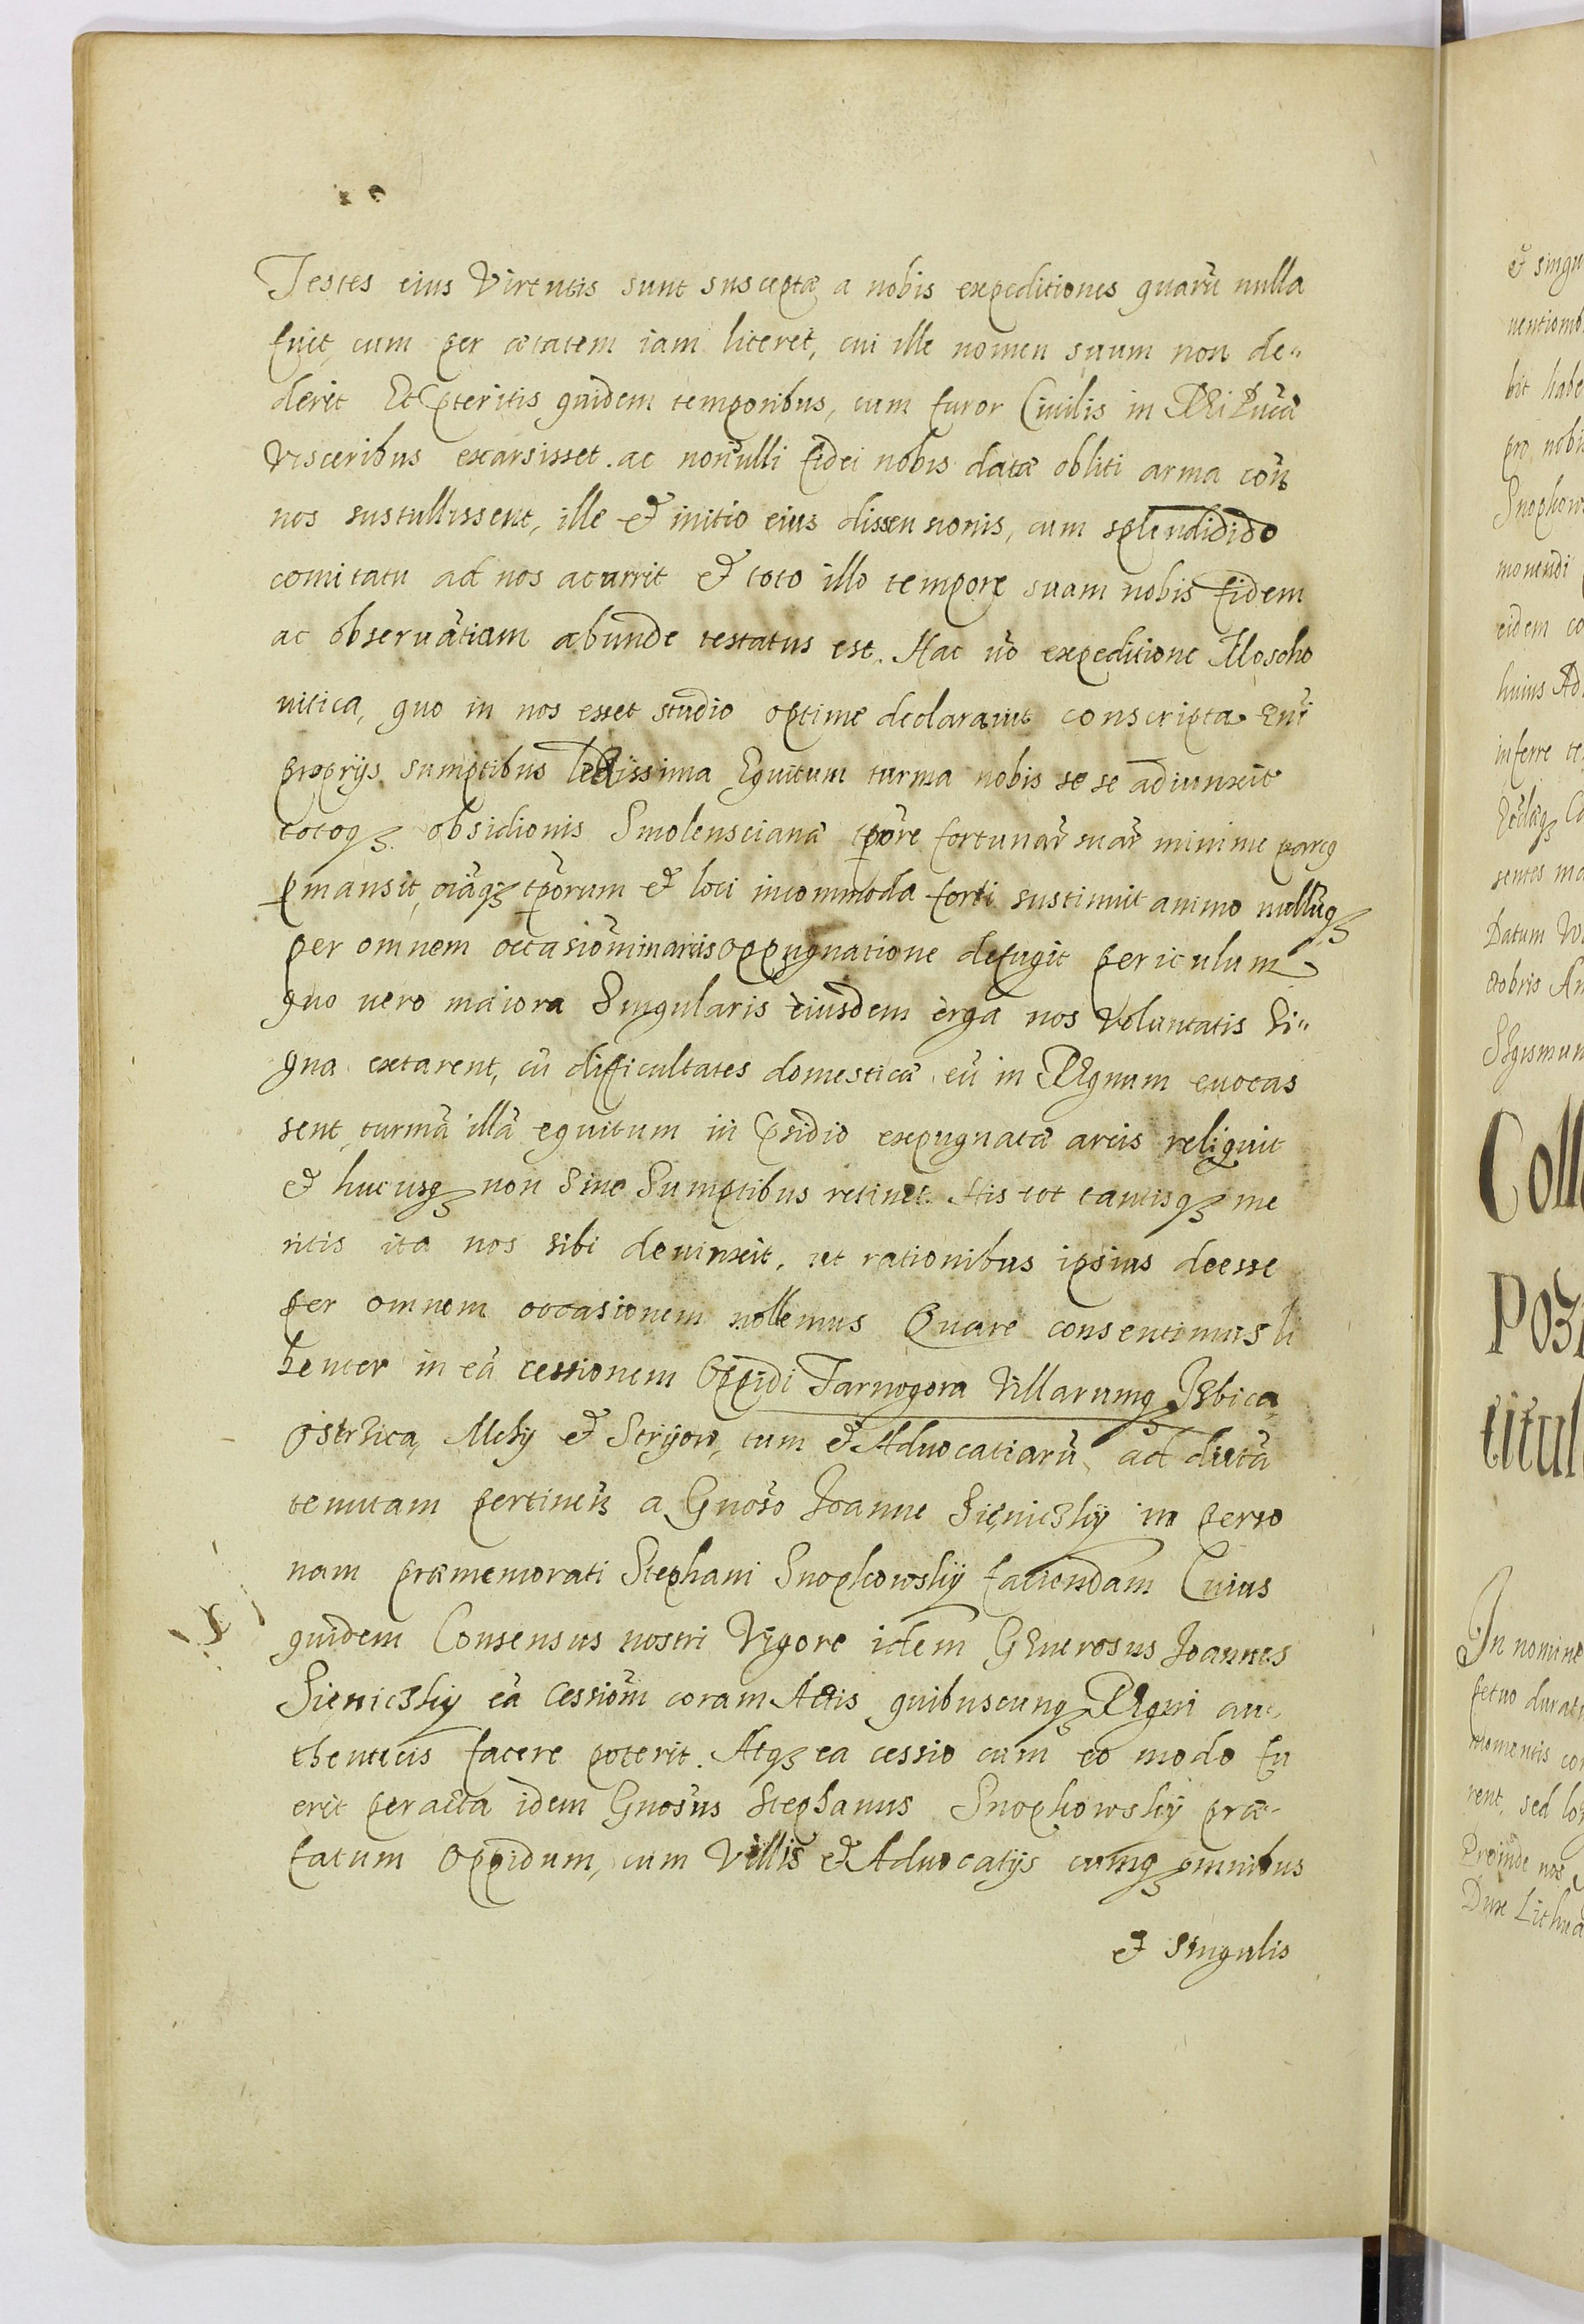 Testes eius Virtutis sunt susceptæ a nobis expeditiones quarū nulla
fuit, cum per ætatem iam liceret, cui ille nomen suum non de„
derit Et pteritis quidem temporibus, cum furor Ciuilis in Rei Pucæ
Visceribus exarsisset. ac nonulli fidei nobis datæ obliti arma con̄
nos sustullissent, ille & initio eius dissensionis, cum splendidido
comitatu ad nos acurrit & toto illo tempore suam nobis fidem
ac obseruātiam abunde testatus est. Hac uō expeditione Moscho
uitica, quo in nos esset studio optime declarauit conscripta Eni
proprijs sumptibus lectissima Equitum turma nobis se se adiunxit
totoq₃ obsidionis Smolenscianæ tpōre fortunar̄ suar̄ minime parcs
pmansit, oīaq₃ tpōrum & loci incommoda forti sustinuit animo nullūq₃
per omnem occasiōm in arcis oppugnatione defugit periculum
quo uero maiora Singularis eiusdem erga nos Voluntatis Si„
gna extarent, cū difficultates domesticæ eū in Regnum euocas
sent turmā illā equitum in psidio expugnatæ arcis reliquit
& hucusq₃ non Sine Sumptibus retinet. His tot tantisq₃ me
ritis ita nos sibi deuinxit, ut rationibus ipsius deesse
per omnem occasionem nollemus Quare consentimus li
benter in eā cessionem Oppidi Tarnogora Villarumq₃ Isbica,
Ostrzica, Mchy & Stryow, tum & Aduocatiarū ad dictā
tenutam pertineñ a Gnoso Joanne Sieniczkÿ in perso
nam præmemorati Stephani Snopkowskÿ faciendam Cuius
quidem Consensus nostri Vigore idem Generosus Joannes
Sieniczky eā Cessiōm coram Actis quibuscunq₃ Regni au„
thenticis facere poterit. Atq₃ ea cessio cum eo modo fu
erit peracta idem Gnosus Stephanus Snopkowskÿ præ„
fatum Oppidum, cum Villis & Aduocatijs cumq₃ omnibus
& Singulis